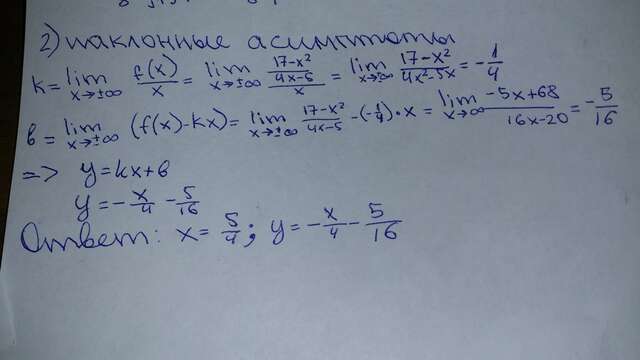 2) наклонные асимптоты
k = lim x→±∞ f(x)/x = lim x→±∞ (17-x²)/(4x-5)/x = lim x→±∞ (17-x²)/(4x²-5x) = -1/4
b = lim x→±∞ (f(x)-kx) = lim x→±∞ (17-x²)/(4x-5) - (-1/4)·x = lim x→∞ (-5x+68)/(16x-20) = -5/16
=> y=kx+b
y = -x/4 - 5/16
Ответ: x = 5/4; y = -x/4 - 5/16